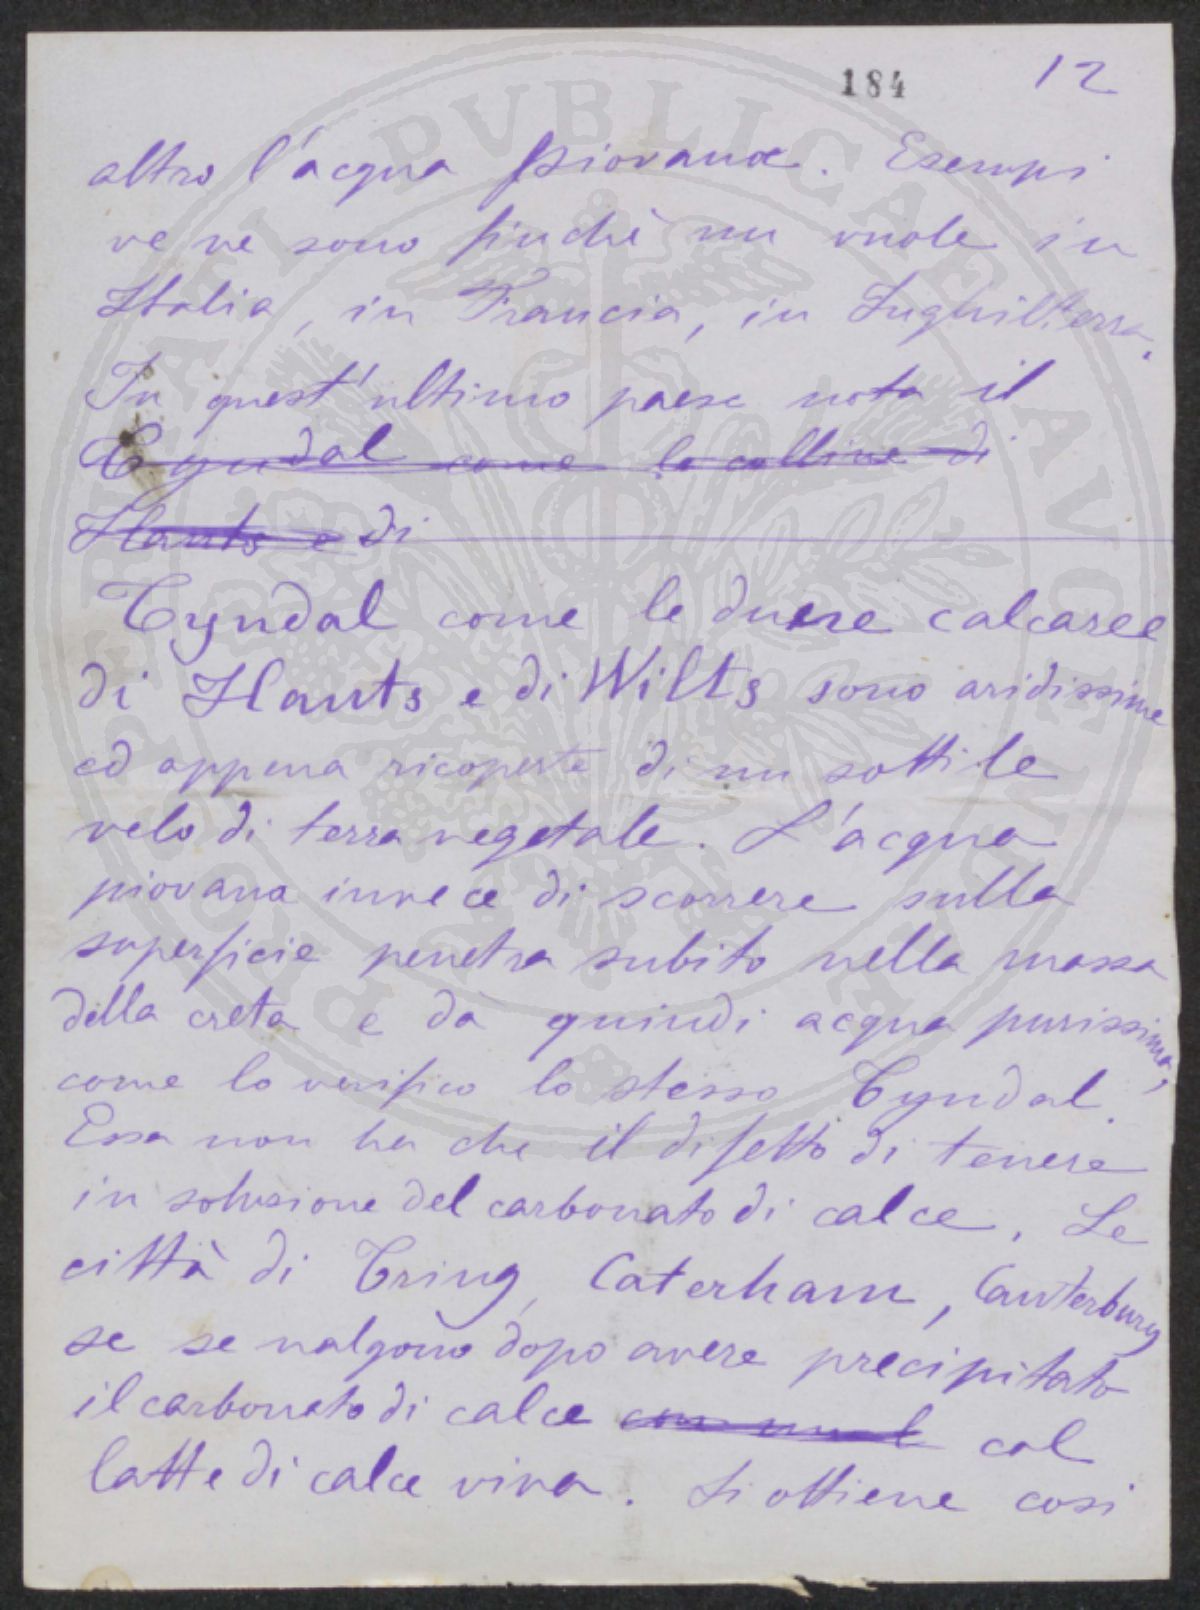 184 12
altro l'acqua piovana. Esempi
ve ne sono finchè un vuole in
Italia, in Francia, in Inghilterra.
In quest'ultimo paese nota il
Tyndal come le colline di
Hants e di
Tyndal come le dune calcaree
di Hants e di Wilts sono aridissime
ed appena ricoperte di un sottile
velo di terra vegetale. L'acqua
piovana invece di scorrere sulla
superficie penetra subito nella massa
della creta e dà quindi acqua purissima,
come lo verifico lo stesso Tyndal.
Essa non ha che il difetto di tenere
in soluzione del carbonato di calce. Le
città di Tring, Caterham, Canterbury
se se valgono dopo avere precipitato
il carbonato di calce col
latte di calce viva. Si ottiene cosi